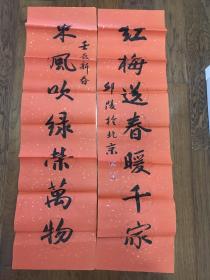 红梅送春暖千家
邱陵於北京
东風吹绿榮萬物
壬辰新春